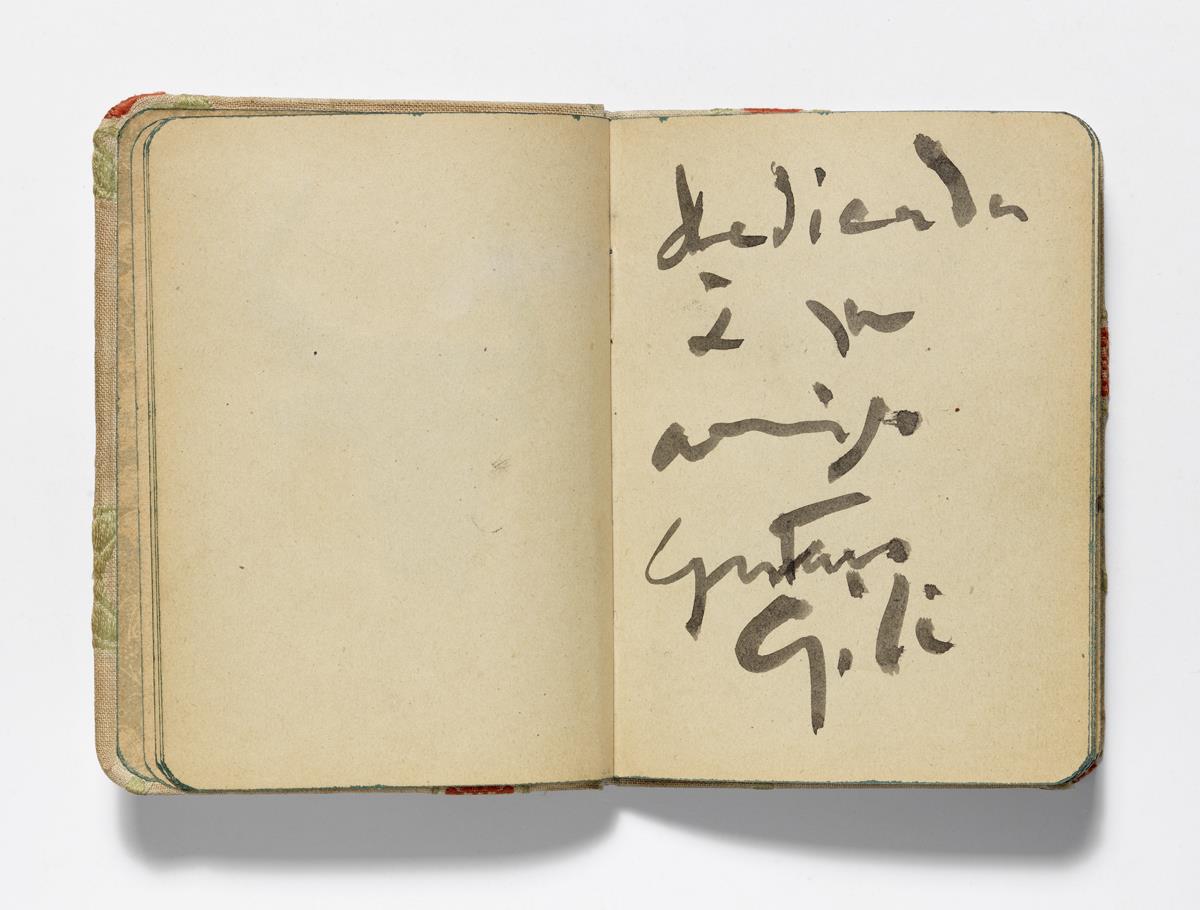 dedicada
à su
amigo
Gustavo
Gili